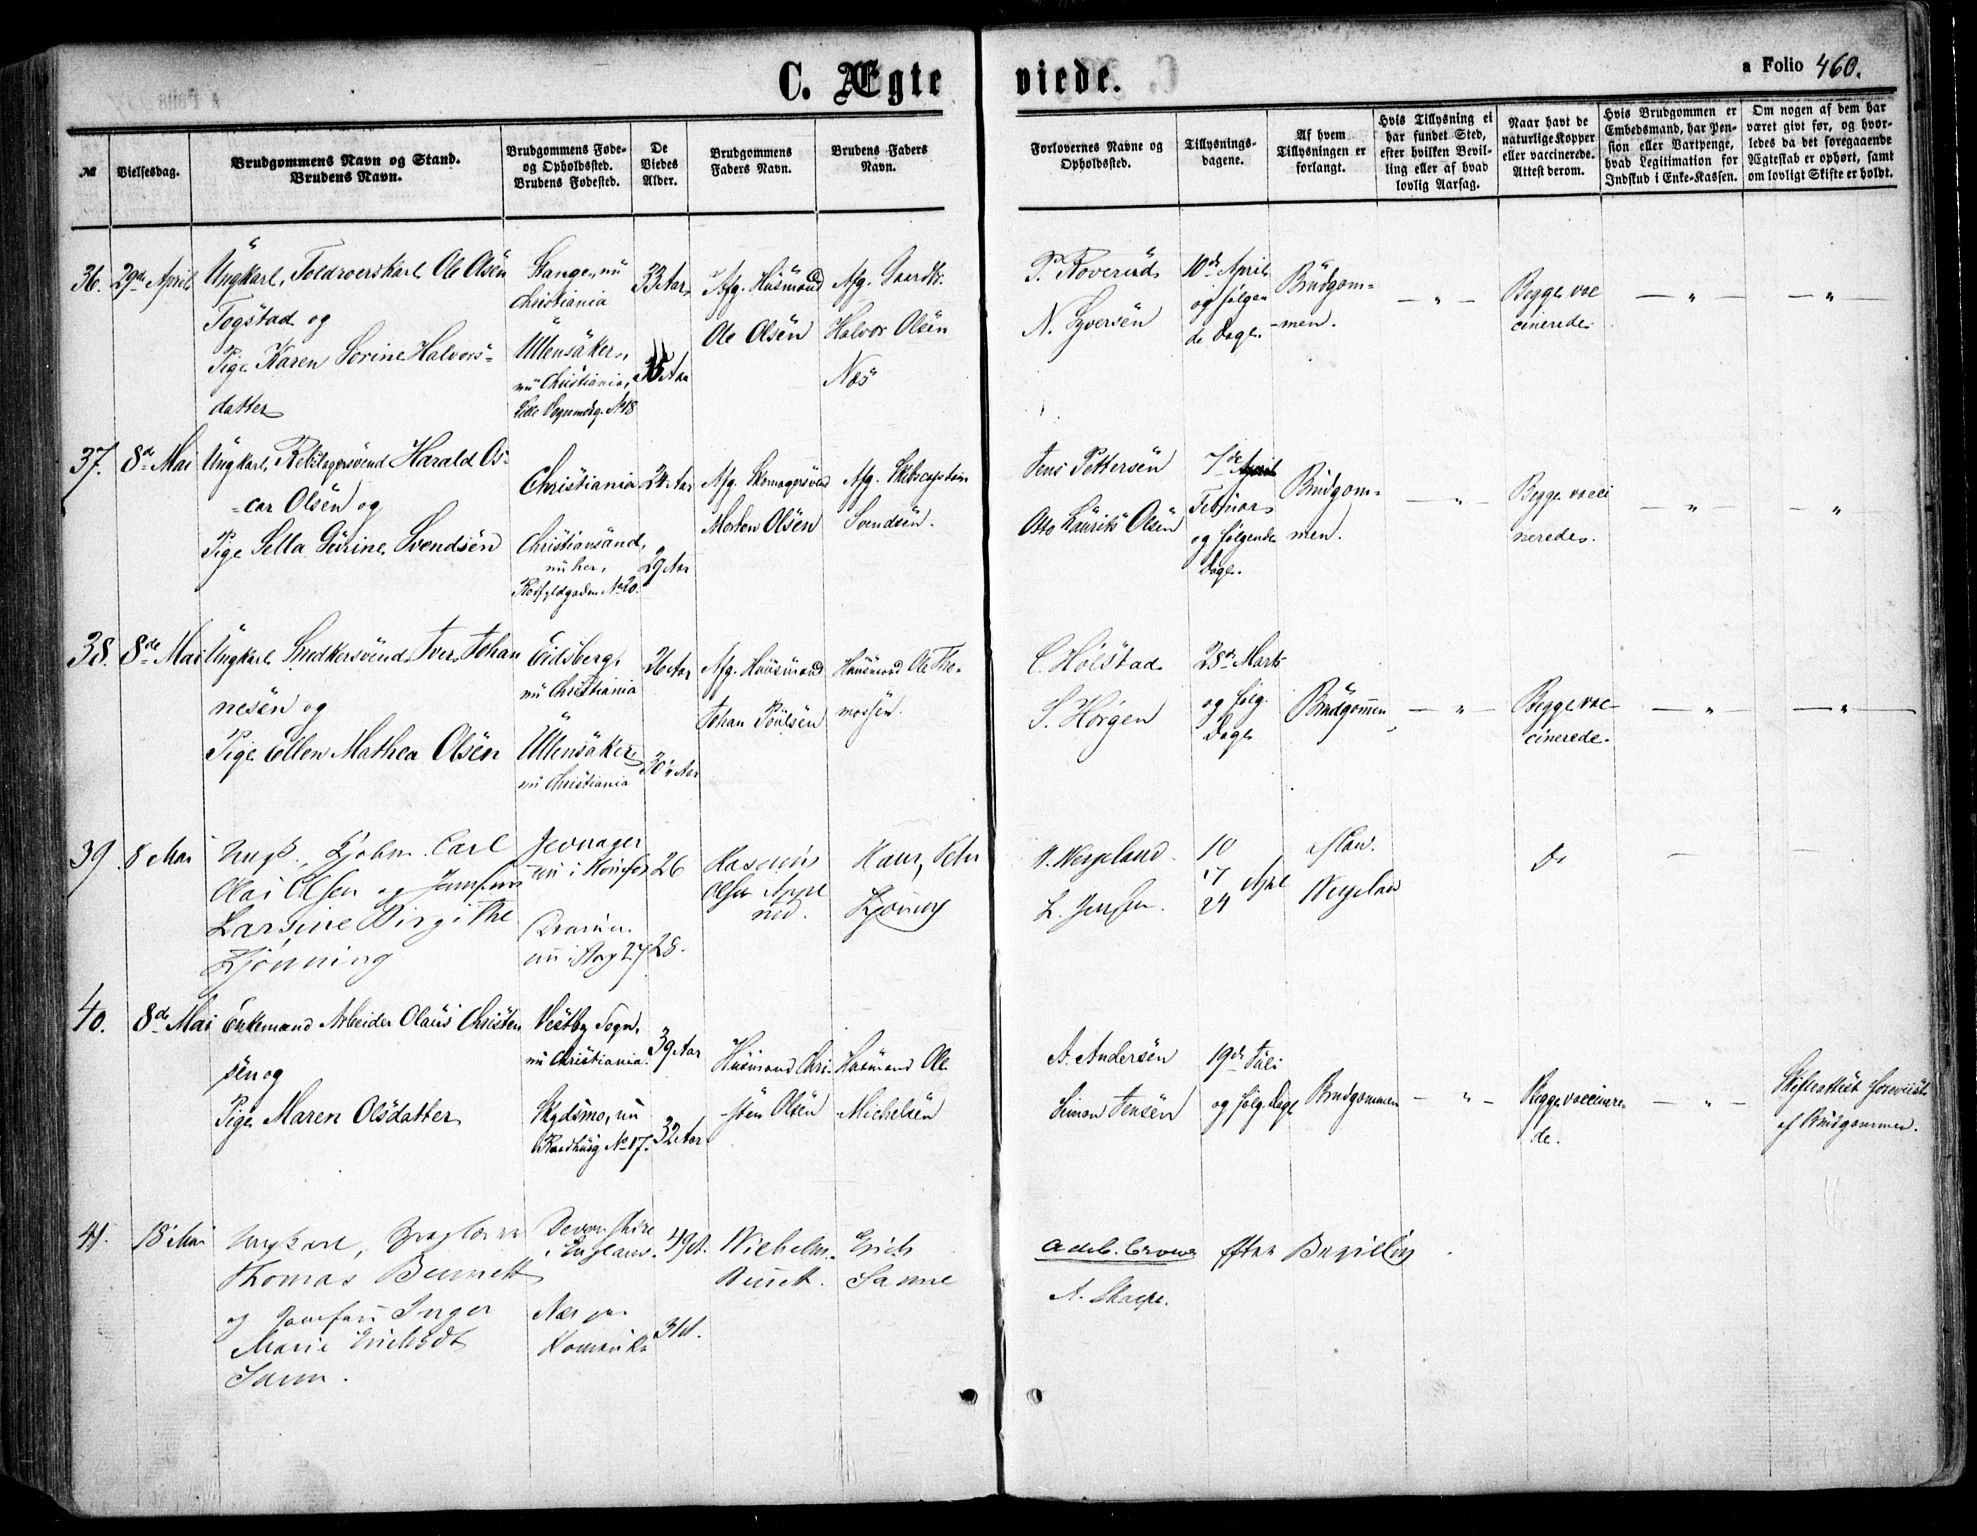 C. Ægte
viede.
a Folio 460.
№
Vielsesdag.
Brudgommens Navn og Stand.
Brudens Navn.
Brudgommens Føde-
og Opholdssted.
Brudens Fødested.
De
Viedes
Alder.
Brudgommens
Faders Navn.
Brudens Faders
Navn.
Forlovernes Navne og
Opholdssted.
Tillysnings-
dagene.
Af hvem
Tillysningen er
forlangt.
Hvis Tillysning ei
har fundet Sted,
efter hvilken Bevil-
ling eller af hvad
lovlig Aarsag.
Naar havt de
naturlige Kopper
eller vaccinerede.
Attest derom.
Hvis Brudgommen er
Embedsmand, har Pen-
sion eller Vartpenge,
hvad Legitimation for
Indskud i Enke-Kassen.
Om nogen af dem har
været givt før, og hvor-
ledes da det foregaaende
Ægteskab er ophørt, samt
om lovligt Skifte er holdt.
36.
29de April
Ungkarl, Toldroerskarl Ole Olsen
Togstad og
Pige Karen Sorine Halvors-
datter
Stange, nu
Christiania
Ullensaker,
nu Christiania,
Lille Vognmdg. No 18
33 Aar
35 Aar
Afg. Husmand
Ole Olsen
Afg. Gaardbr.
Halvor Olsen
Næs
P. Roverud
N. Syversen
10de April
og følgen
de Dage.
Brudgom-
men.
— " —
Begge vac
cinerede
— " —
— " —
37.
8de Mai
Ungkarl, Rebslagersvend Harald Os-
car Olsen og
Pige Sella Gurine Svendsen
Christiania
Christiansand,
nu her,
24 Aar
29 Aar
Afg. Skomagersvend
Morten Olsen
Afg. Skibscaptain
Svendsen.
Jens Pettersen
Otto Lauritz Olsen
7de April
Februar
og følgende
Dage.
Brudgom-
men.
— " —
Begge vacci
nerede.
— " —
"
38.
8de Mai
Ungkarl Snedkersvend Iver Johan
nesen og
Pige Ellen Mathea Olsen
Eidsberg,
nu Christiania
Ullensaker
nu Christiania
26 Aar
30 Aar
Afg. Huusmand
Johan Poulsen
Huusmand Ole Tho-
massen.
C. Holstad
S. Horgen
28de Marts
og følg.
Dage
Brudgommen
— " —
Begge vac-
cinerede.
— " —
— " —
39
8 Mai
Ungk., Carl
Olai Olsen og Jomfru
Larsine Birgithe
Kjønning
Jevnager
nu i Hønefos
nu i 27
26
28.
Rasmus
Olsen
Hans Peter
Kjønning
N. Wergeland
L. Jensen.
10
17 Apr
24
Wergeland
Do
—
—
40.
8de Mai
Enkemand Arbeider Olaus Christen
sen og
Pige Maren Olsdatter
Vestby Sogn,
nu Christiania.
Skydsmo, nu
Raadhusg No 17.
39 Aar
32 Aar
Husmand Chri-
sten Olsen
Husmand Ole
Michelsen
A. Andersen
Simon Jensen
19de Juli
og følg. Dage
Brudgommen
— " —
Begge vaccinere-
de.
— " —
Skifteattest foreviist
af Brudgommen.
41.
18 Mai
Ungkarl,
Thomas Bennett
og Jomfru Inger
Marie Erichsdt
Sanne.
Devonshire
i England.
Nær paa
Romerike
49 A.
31 A.
Wilhelm
Bennett.
Erich
Sanne
A. Sharpe.
Efter Bevilling